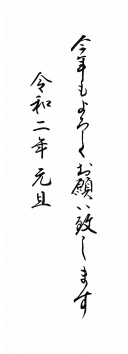 今年もよろしくお願い致します
令和二年元旦